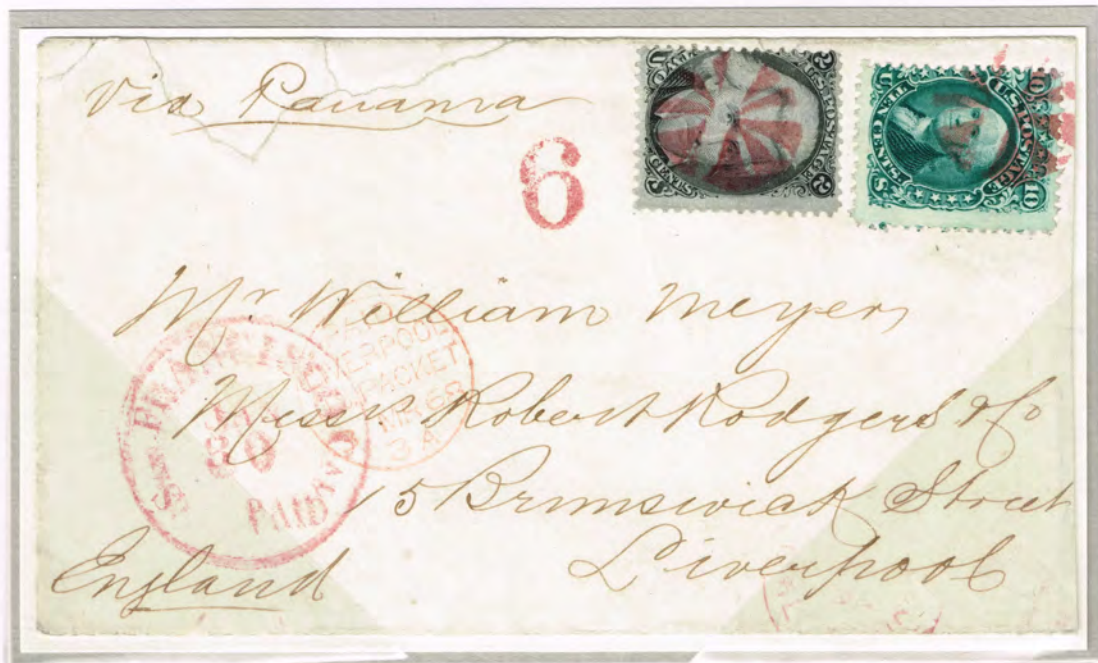 Via Panama
6
U.S. POSTAGE
2 2
CENTS.
U.S. POSTAGE
10 10
TEN CENTS.
Mr. William Meyer
Messrs Robert Rodgers & Co
15 Brunswick Street
Liverpool
England
SAN FRANCISCO
30
PAID
LIVERPOOL
PACKET
MR 68
3 A